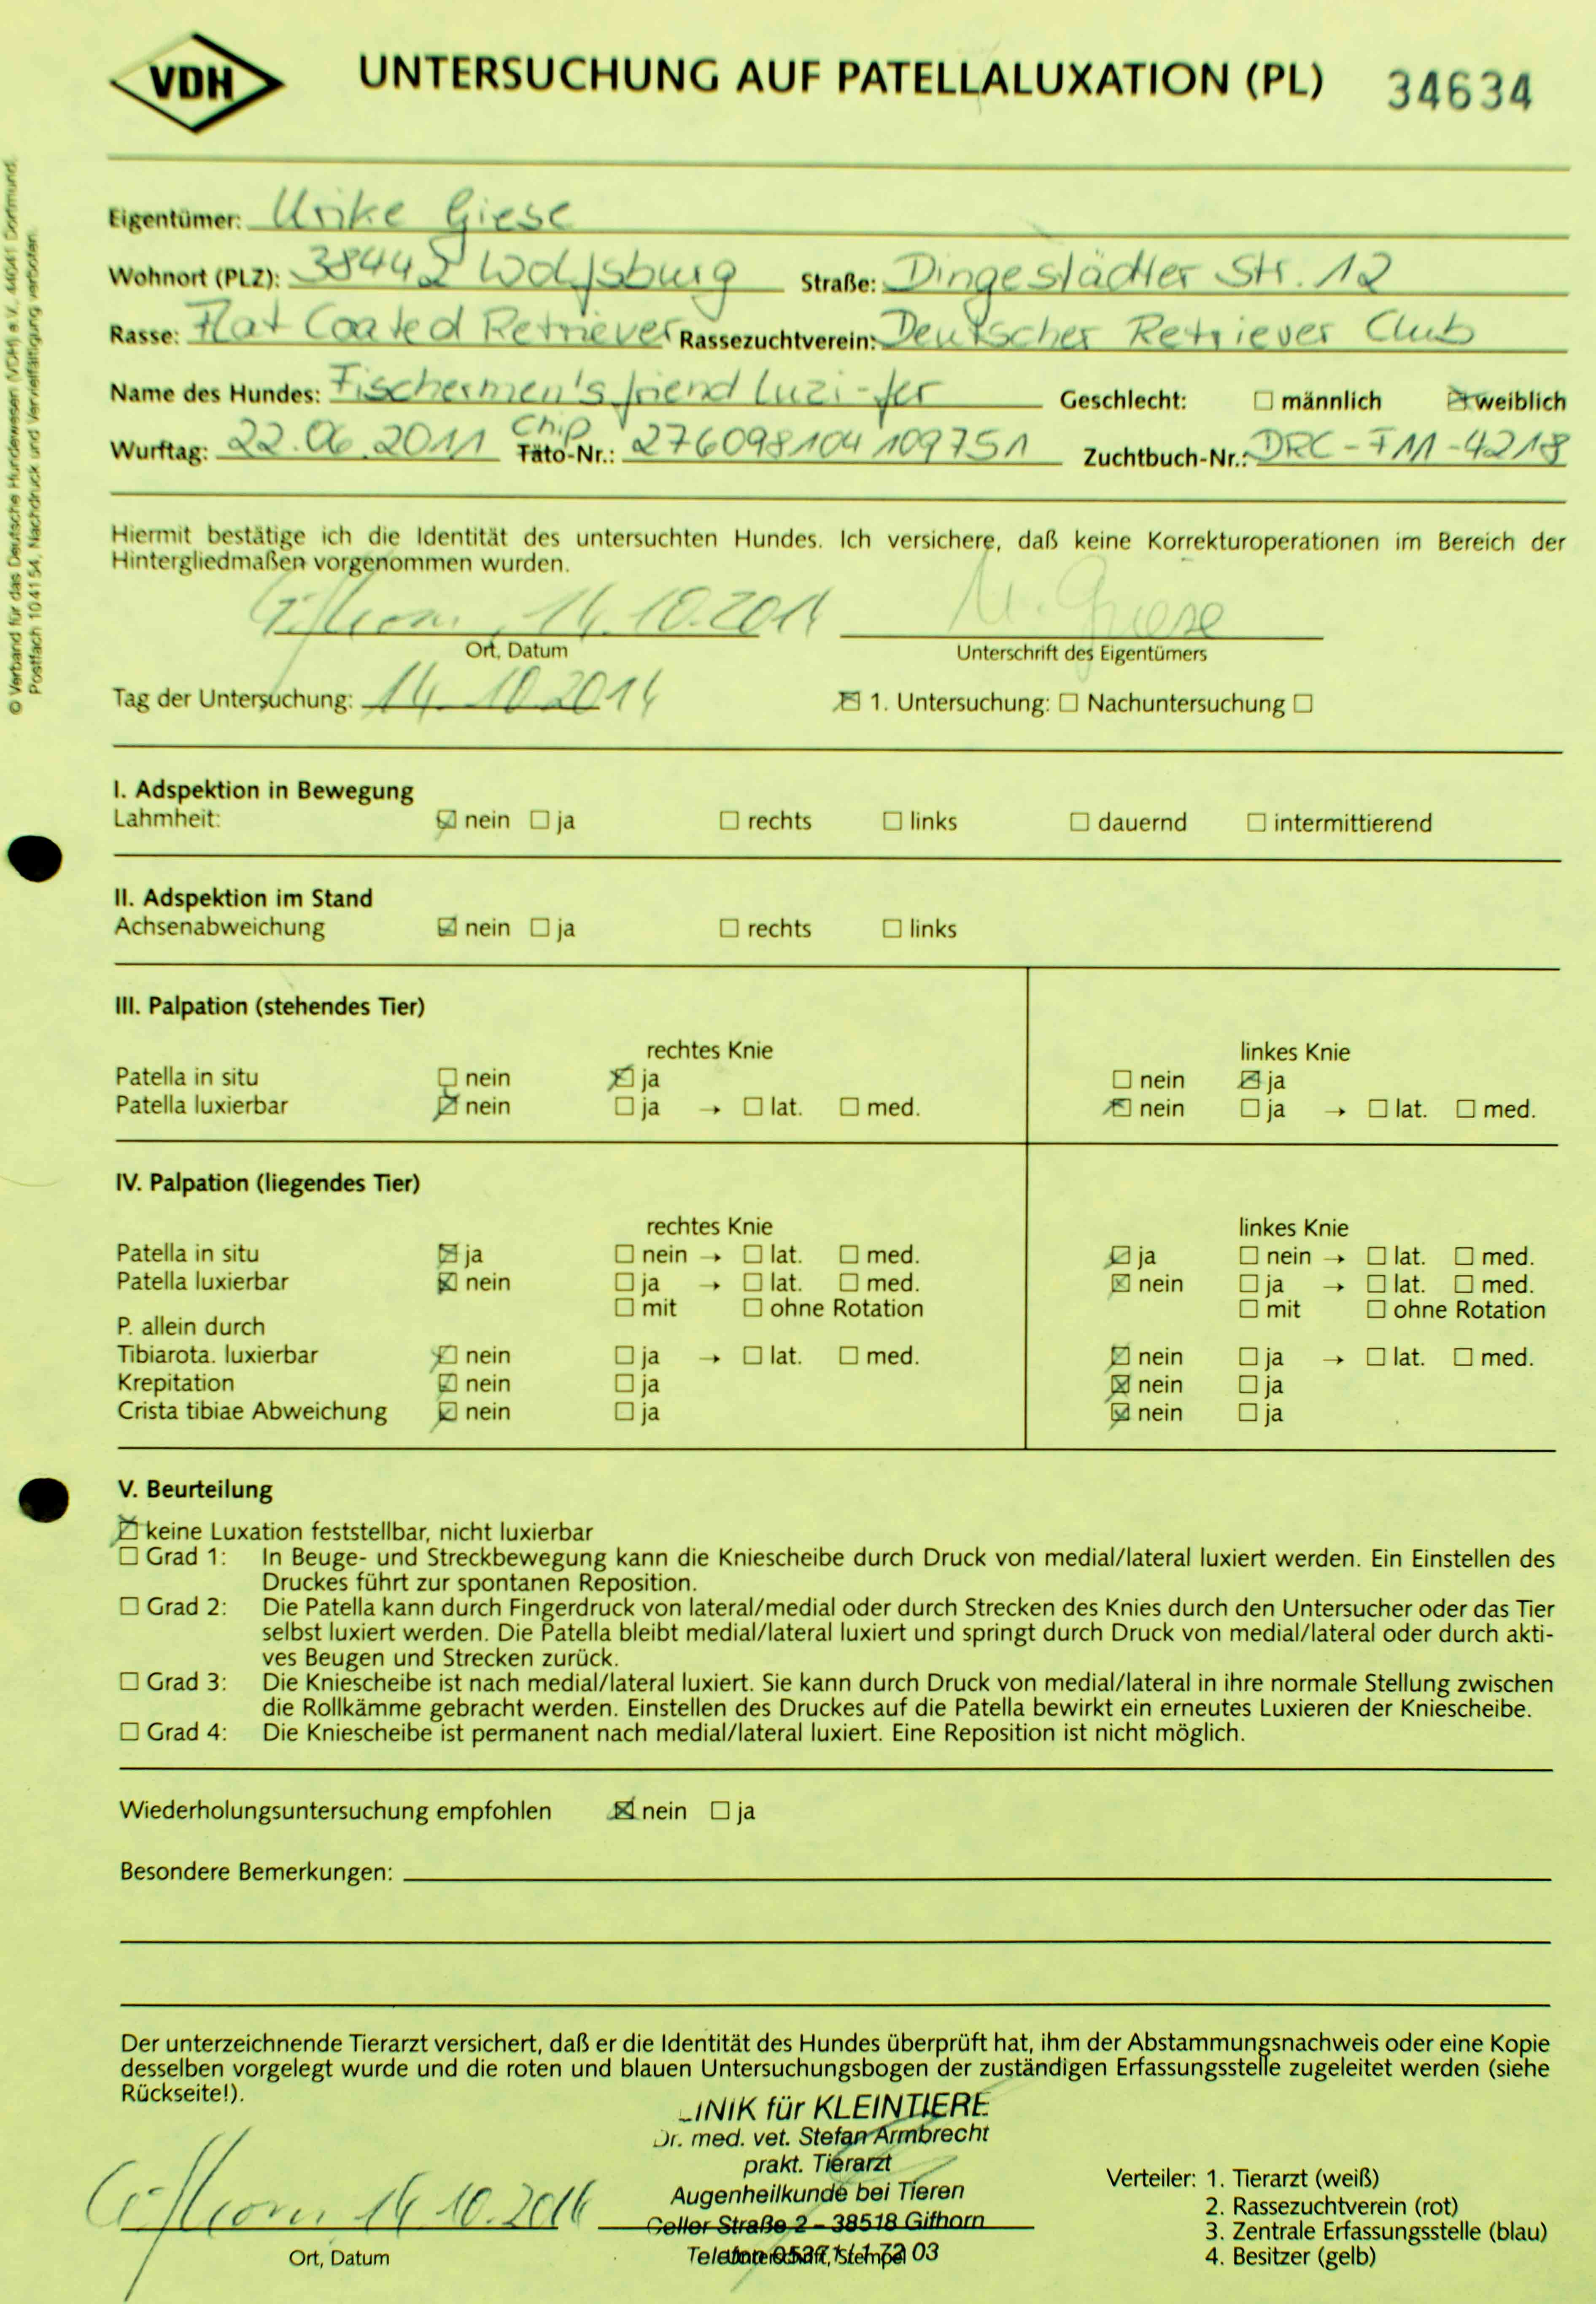 VDH
UNTERSUCHUNG AUF PATELLALUXATION (PL) 34634
© Verband für das Deutsche Hundewesen (VDH) e.V., 44041 Dortmund,
Postfach 104154, Nachdruck und Vervielfältigung verboten
Eigentümer: Ulrike Giese
Wohnort (PLZ): 38442 Wolfsburg Straße: Dingestädter Str. 12
Rasse: Flat Coated Retriever Rassezuchtverein: Deutscher Retriever Club
Name des Hundes: Fischermen's friend Luzi-fer Geschlecht: ☐ männlich ☒ weiblich
Chip
Wurftag: 22.06.2011 Täto-Nr.: 276098104109751 Zuchtbuch-Nr.: DRC-F11-4218
Hiermit bestätige ich die Identität des untersuchten Hundes. Ich versichere, daß keine Korrekturoperationen im Bereich der
Hintergliedmaßen vorgenommen wurden.
Gifhorn, 14.10.2014 U. Giese
Ort, Datum Unterschrift des Eigentümers
Tag der Untersuchung: 14.10.2014 ☒ 1. Untersuchung: ☐ Nachuntersuchung ☐
I. Adspektion in Bewegung
Lahmheit: ☒ nein ☐ ja ☐ rechts ☐ links ☐ dauernd ☐ intermittierend
II. Adspektion im Stand
Achsenabweichung ☒ nein ☐ ja ☐ rechts ☐ links
III. Palpation (stehendes Tier)
rechtes Knie linkes Knie
Patella in situ ☐ nein ☒ ja ☐ nein ☒ ja
Patella luxierbar ☒ nein ☐ ja → ☐ lat. ☐ med. ☒ nein ☐ ja → ☐ lat. ☐ med.
IV. Palpation (liegendes Tier)
rechtes Knie linkes Knie
Patella in situ ☒ ja ☐ nein → ☐ lat. ☐ med. ☒ ja ☐ nein → ☐ lat. ☐ med.
Patella luxierbar ☒ nein ☐ ja → ☐ lat. ☐ med. ☒ nein ☐ ja → ☐ lat. ☐ med.
☐ mit ☐ ohne Rotation ☐ mit ☐ ohne Rotation
P. allein durch
Tibiarota. luxierbar ☒ nein ☐ ja → ☐ lat. ☐ med. ☒ nein ☐ ja → ☐ lat. ☐ med.
Krepitation ☒ nein ☐ ja ☒ nein ☐ ja
Crista tibiae Abweichung ☒ nein ☐ ja ☒ nein ☐ ja
V. Beurteilung
☒ keine Luxation feststellbar, nicht luxierbar
☐ Grad 1: In Beuge- und Streckbewegung kann die Kniescheibe durch Druck von medial/lateral luxiert werden. Ein Einstellen des
Druckes führt zur spontanen Reposition.
☐ Grad 2: Die Patella kann durch Fingerdruck von lateral/medial oder durch Strecken des Knies durch den Untersucher oder das Tier
selbst luxiert werden. Die Patella bleibt medial/lateral luxiert und springt durch Druck von medial/lateral oder durch akti-
ves Beugen und Strecken zurück.
☐ Grad 3: Die Kniescheibe ist nach medial/lateral luxiert. Sie kann durch Druck von medial/lateral in ihre normale Stellung zwischen
die Rollkämme gebracht werden. Einstellen des Druckes auf die Patella bewirkt ein erneutes Luxieren der Kniescheibe.
☐ Grad 4: Die Kniescheibe ist permanent nach medial/lateral luxiert. Eine Reposition ist nicht möglich.
Wiederholungsuntersuchung empfohlen ☒ nein ☐ ja
Besondere Bemerkungen:
Der unterzeichnende Tierarzt versichert, daß er die Identität des Hundes überprüft hat, ihm der Abstammungsnachweis oder eine Kopie
desselben vorgelegt wurde und die roten und blauen Untersuchungsbogen der zuständigen Erfassungsstelle zugeleitet werden (siehe
Rückseite!).
LINIK für KLEINTIERE
Dr. med. vet. Stefan Armbrecht
prakt. Tierarzt
Augenheilkunde bei Tieren
Celler Straße 2 – 38518 Gifhorn
Telefon 05371/1 72 03
Gifhorn 14.10.2014
Ort, Datum Unterschrift, Stempel
Verteiler: 1. Tierarzt (weiß)
2. Rassezuchtverein (rot)
3. Zentrale Erfassungsstelle (blau)
4. Besitzer (gelb)